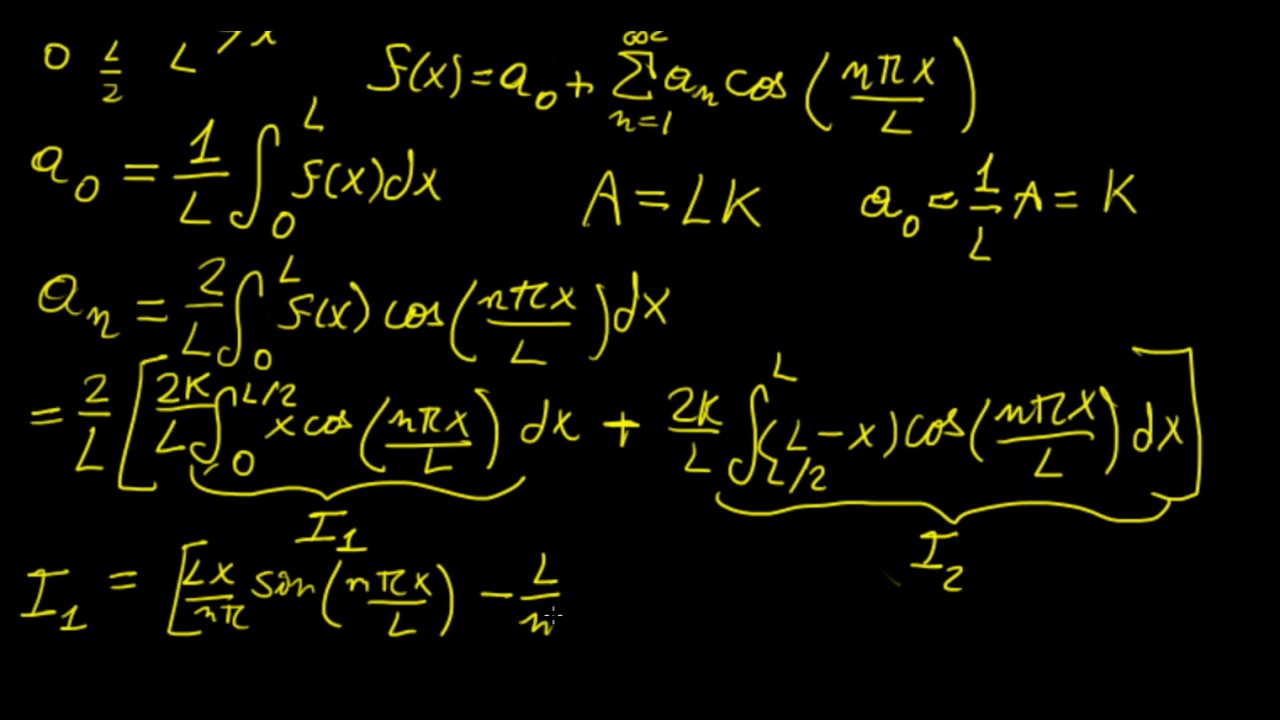 0 L/2 L x f(x) = a₀ + ∑_{n=1}^{∞} aₙ cos (nπx/L)
a₀ = 1/L ∫₀^L f(x)dx A = LK a₀ = 1/L A = K
aₙ = 2/L ∫₀^L f(x) cos (nπx/L) dx
= 2/L [ 2K/L ∫₀^{L/2} x cos (nπx/L) dx + 2K/L ∫_{L/2}^L (L-x) cos (nπx/L) dx ]
I₁ I₂
I₁ = [ Lx/nπ sin (nπx/L) - L/n